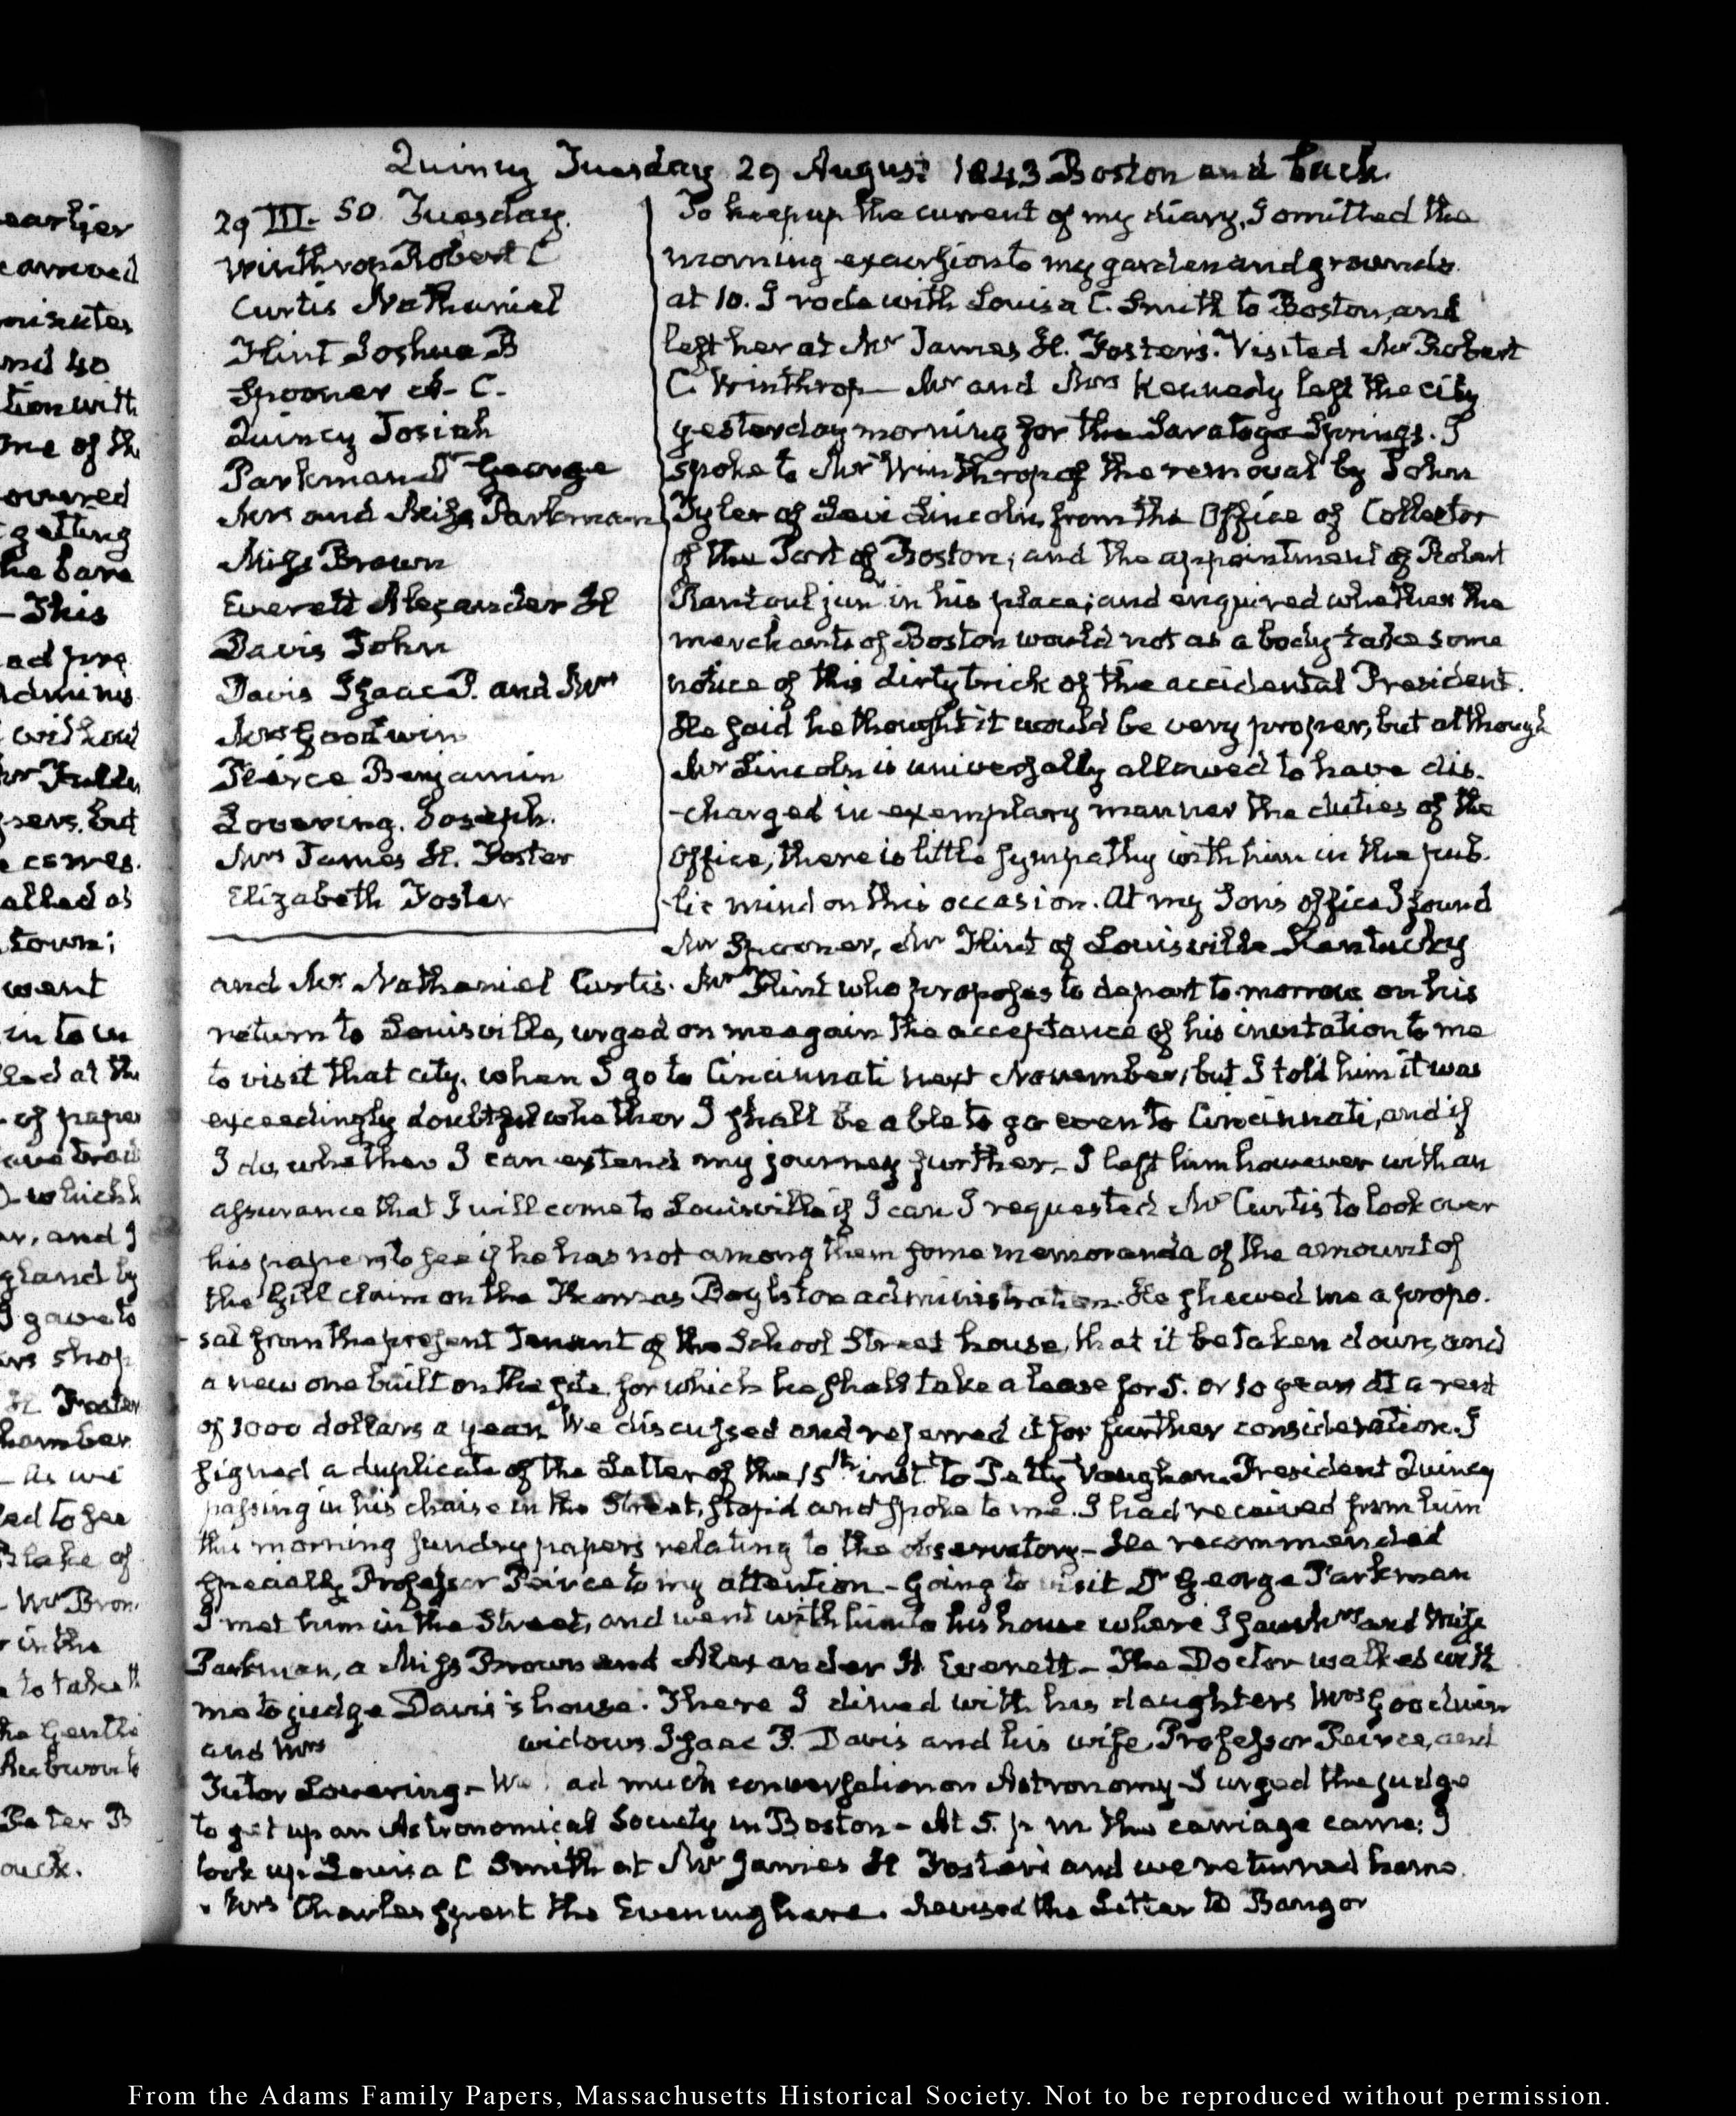 Quincy Tuesday 29 August 1843 Boston and back.
29 III. 50. Tuesday.
Winthrop Robert C
Curtis Nathaniel
Flint Joshua B
Spooner A. C.
Quincy Josiah
Parkman Dr George
Mrs and Miss Parkman
Miss Brown
Everett Alexander H
Davis John
Davis Isaac P. and Mrs
Mrs Goodwin
Peirce Benjamin
Lovering. Joseph.
Mrs James H. Foster
Elizabeth Foster
To keep up the current of my diary, I omitted the
morning excursion to my garden and grounds.
at 10. I rode with Louisa C. Smith to Boston, and
left her at Mr James H. Foster's. Visited Mr Robert
C. Winthrop — Mr and Mrs Kennedy left the city
yesterday morning for the Saratoga Springs. I
spoke to Mr Winthrop of the removal by John
Tyler of Levi Lincoln, from the Office of Collector
of the Port of Boston; and the appointment of Robert
Rantoul junr in his place; and enquired whether the
merchants of Boston would not as a body take some
notice of this dirty trick of the accidental President.
He said he thought it would be very proper, but although
Mr Lincoln is universally allowed to have dis-
-charged in exemplary manner the duties of the
Office, there is little sympathy with him in the pub-
-lic mind on this occasion. At my Son's office I found
Mr Spooner, Mr Flint of Louisville Kentucky
and Mr Nathaniel Curtis. Mr Flint who proposes to depart to-morrow on his
return to Louisville, urged on me again the acceptance of his invitation to me
to visit that city, when I go to Cincinnati next November, but I told him it was
exceedingly doubtful whether I shall be able to go even to Cincinnati, and if
I do, whether I can extend my journey further — I left him however with an
assurance that I will come to Louisville if I can. I requested Mr Curtis to look over
his papers to see if he has not among them some memoranda of the amount of
the Gill claim on the Thomas Boylston administration. He shewed me a propo-
-sal from the present Tenant of the School Street house, that it be taken down, and
a new one built on the site, for which he shall take a lease for 5. or 10 years at a rent
of 1000 dollars a year. We discussed and referred it for further consideration. I
signed a duplicate of the Letter of the 15th inst. to Petty Vaughan. President Quincy
passing in his chaise in the Street, stop'd and spoke to me. I had received from him
this morning sundry papers relating to the observatory — He recommended
specially Professor Peirce to my attention — Going to visit Dr George Parkman
I met him in the Street, and went with him to his house where I saw Mrs and Miss
Parkman, a Miss Brown and Alexander H. Everett — The Doctor walked with
me to judge Davis's house. There I dined with his daughters Mrs Goodwin
and Mrs widows. Isaac P. Davis and his wife, Professor Peirce, and
Tutor Lovering — We had much conversation on Astronomy — I urged the judge
to get up an Astronomical Society in Boston — At 5. p m the carriage came; I
took up Louisa C Smith at Mr James H Foster's and we returned home.
Mrs Charles spent the Evening here. Revised the Letter to Bangor
From the Adams Family Papers, Massachusetts Historical Society. Not to be reproduced without permission.